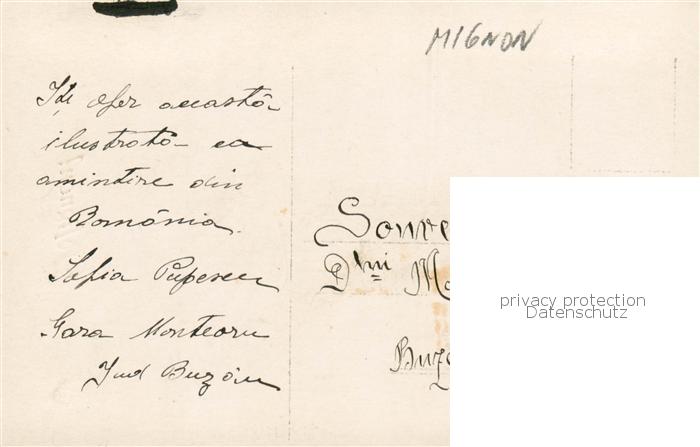 MIGNON
Iți ofer această
ilustrată ca
amintire din
România.
Sofia Popescu
Gara Monteoru
Jud Buzău
Souve
Dlui
privacy protection
Datenschutz